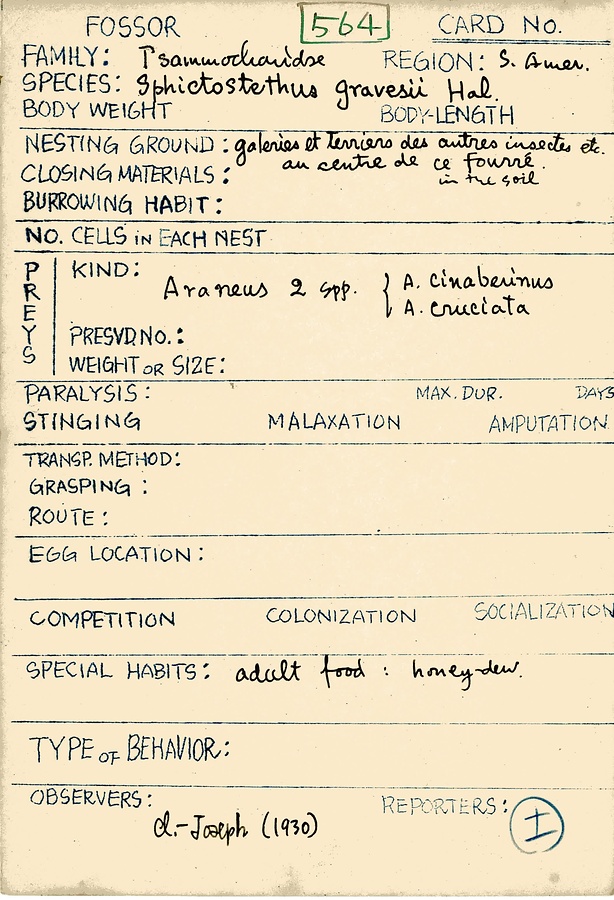 FOSSOR 564 CARD NO.
FAMILY: Psammocharidae REGION: S. Amer.
SPECIES: Sphictostethus gravesii Hal.
BODY WEIGHT BODY-LENGTH
NESTING GROUND: galeries et terriers des autres insectes etc.
au centre de ce fourré.
CLOSING MATERIALS: in the soil
BURROWING HABIT:
NO. CELLS IN EACH NEST
PREYS
KIND: Araneus 2 spp. { A. cinaberinus
A. cruciata
PRESVD NO.:
WEIGHT OR SIZE:
PARALYSIS: MAX. DUR. DAYS
STINGING MALAXATION AMPUTATION
TRANSP. METHOD:
GRASPING:
ROUTE:
EGG LOCATION:
COMPETITION COLONIZATION SOCIALIZATION
SPECIAL HABITS: adult food: honey-dew.
TYPE OF BEHAVIOR:
OBSERVERS: REPORTERS: I
Cl.-Joseph (1930)